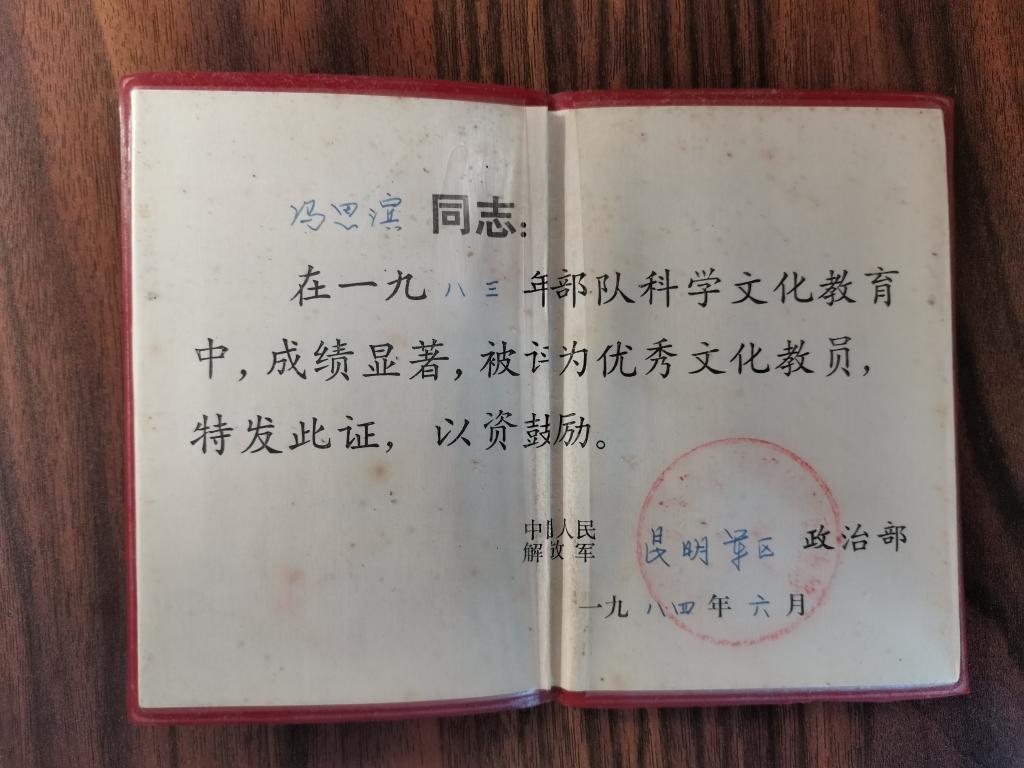 冯思滨 同志：
在一九八三年部队科学文化教育
中，成绩显著，被评为优秀文化教员，
特发此证，以资鼓励。
中国人民
解放军 昆明军区 政治部
一九八四年六月